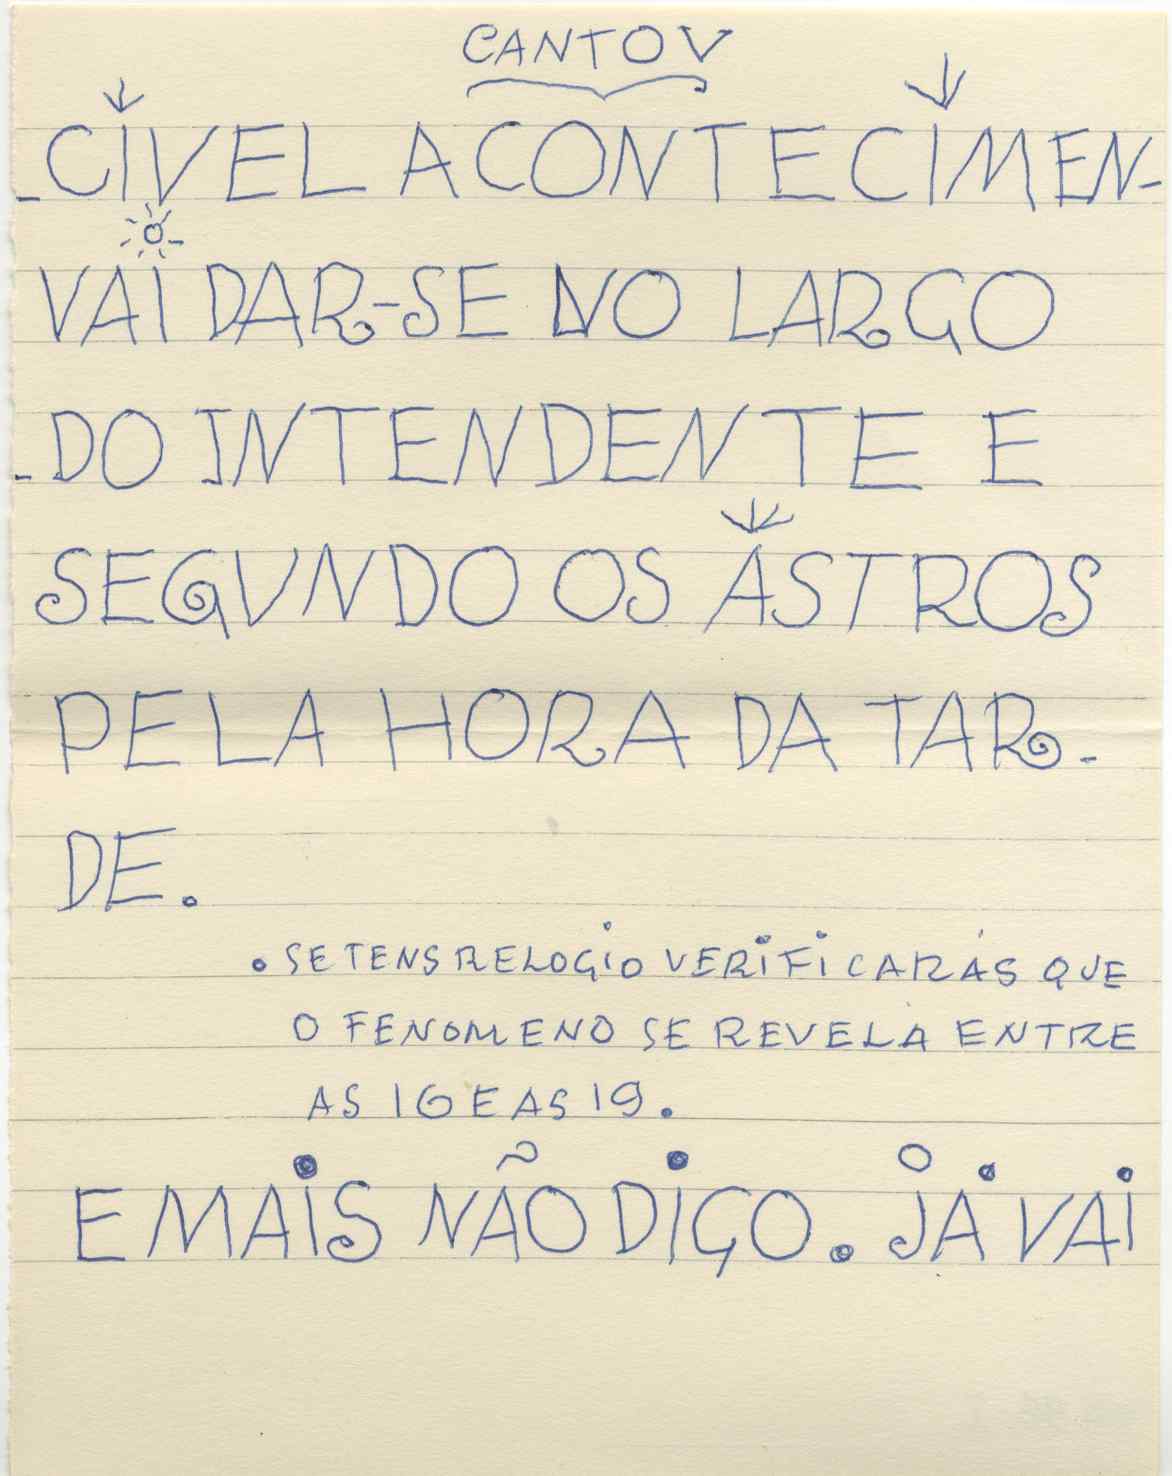 CANTO V
-CIVEL ACONTECIMEN-
VAI DAR-SE NO LARGO
-DO INTENDENTE E
SEGUNDO OS ASTROS
PELA HORA DA TAR-
DE.
. SE TENS RELOGIO VERIFICARÁS QUE
O FENOMENO SE REVELA ENTRE
AS 16 E AS 19.
E MAIS NÃO DIGO. JÁ VAI